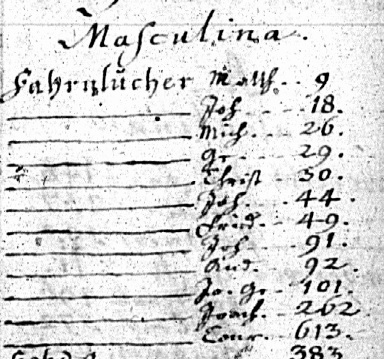 Masculina.
Fahrnlücher Matth. 9
Joh. 18.
Mich. 26.
Gr. 29.
Christ 30.
Joh. 44.
Frid. 49.
Joh. 91.
And. 92.
Jo. Gr. 101.
Joach. 262
Conr. 613.
383